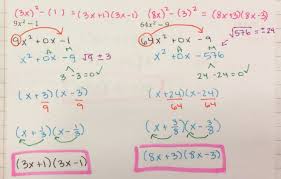 (3x)² - (1) = (3x+1)(3x-1)
9x² - 1
9x² + 0x - 1
A M
x² + 0x - 9 √9 ± 3
3 -3 = 0 ✓
(x + 3)(x - 3)
9 9
(x + 1/3)(x - 1/3)
(3x+1)(3x-1)
(8x)² - (3)² = (8x+3)(8x-3)
64x² - 9
64x² + 0x - 9 √576 = ±24
A M
x² + 0x - 576
24 -24 = 0 ✓
(x+24)(x-24)
64 64
(x + 3/8)(x - 3/8)
(8x+3)(8x-3)